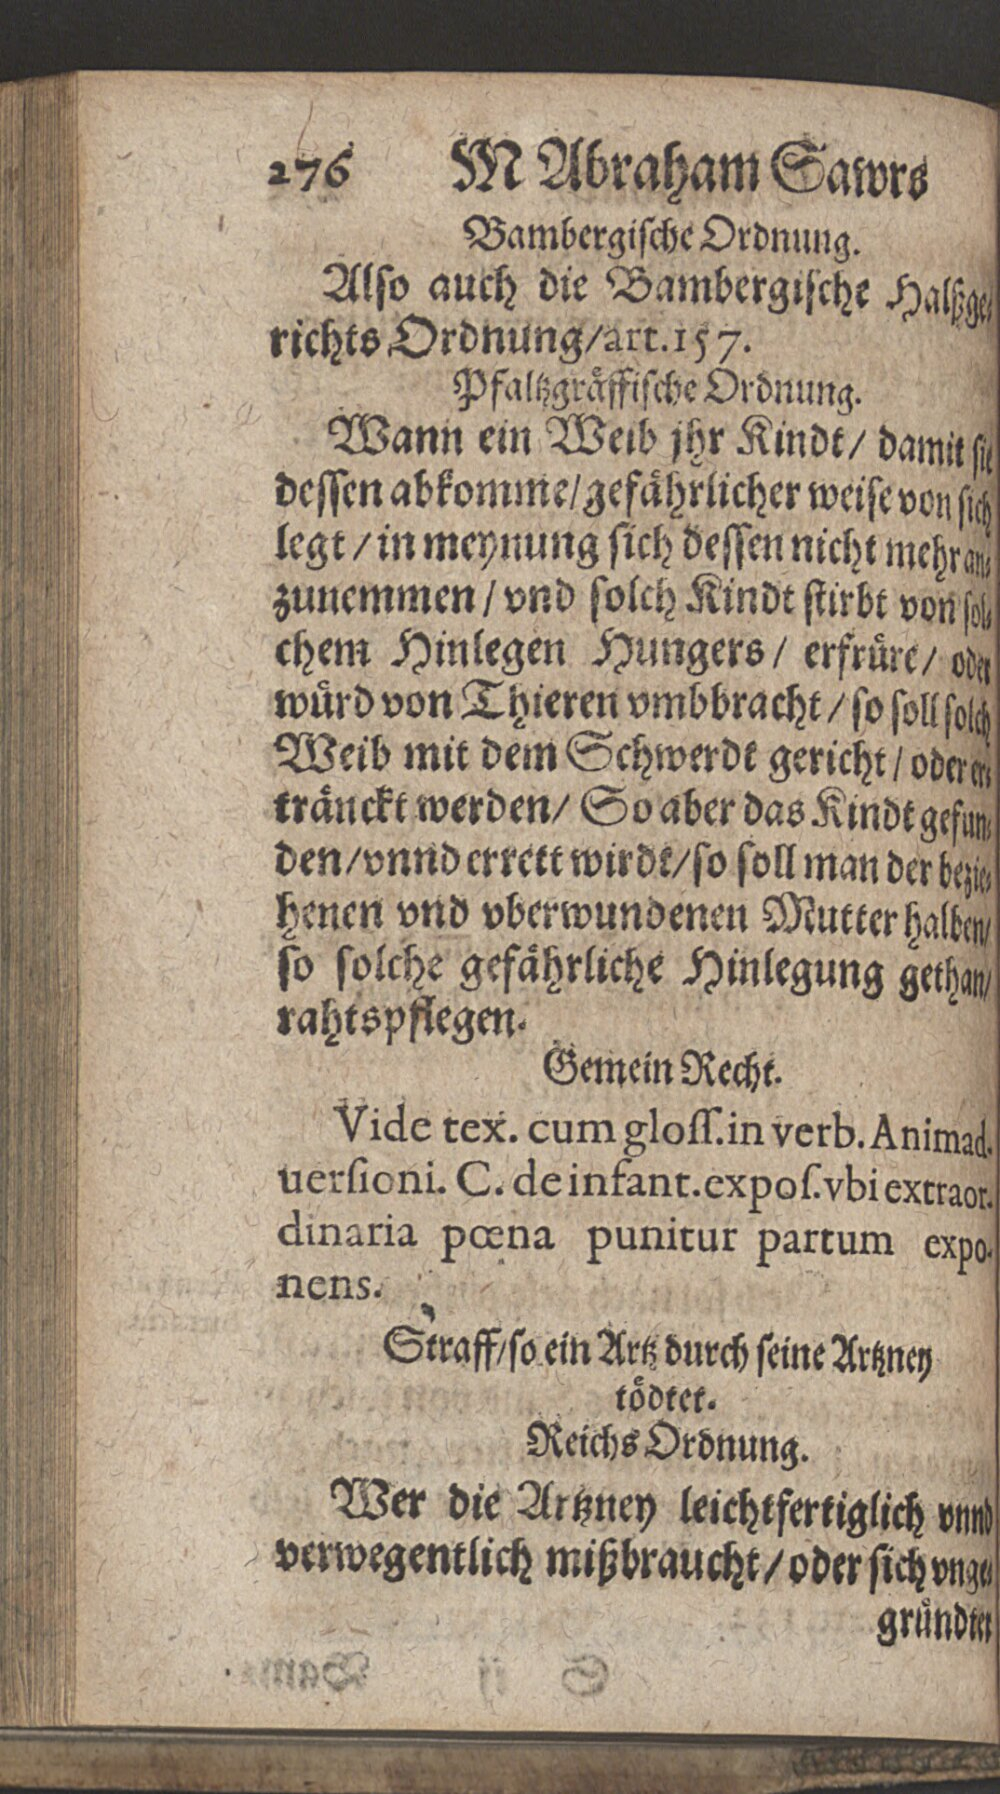 276 M Abraham Sawrs
Bambergische Ordnung.
Also auch die Bambergische Halßge⸗
richts Ordnung/art.157.
Pfaltzgräffische Ordnung.
Wann ein Weib jhr Kindt/ damit sie
dessen abkomme/gefährlicher weise von sich
legt/in meynung sich dessen nicht mehr an⸗
zunemmen/vnd solch Kindt stirbt von sol⸗
chem Hinlegen Hungers/ erfrüre/ oder
würd von Thieren vmbbracht/so soll solch
Weib mit dem Schwerdt gericht/oder er⸗
tränckt werden/ So aber das Kindt gefun⸗
den/vnnd errett wirdt/so soll man der bezie⸗
henen vnd vberwundenen Mutter halben/
so solche gefährliche Hinlegung gethan/
rahtspflegen.
Gemein Recht.
Vide tex. cum gloſſ.in verb. Animad-
uerſioni. C. de infant.expoſ.vbi extraor-
dinaria pœna punitur partum expo-
nens.
Straff/so ein Artz durch seine Artzney
tödtet.
Reichs Ordnung.
Wer die Artzney leichtfertiglich vnnd
verwegentlich mißbraucht/oder sich vnge⸗
gründter